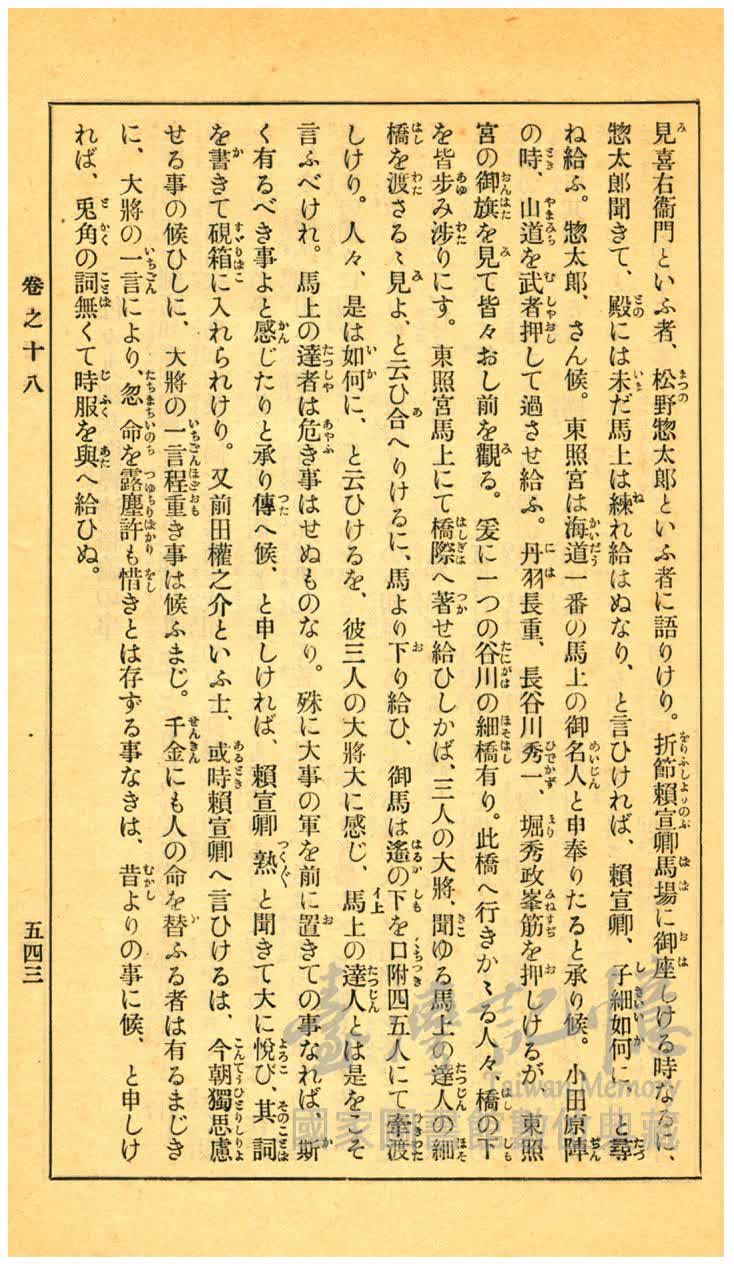 見喜右衞門といふ者、松野惣太郎といふ者に語りけり。折節賴宣卿馬場に御座しける時なるに、
惣太郎聞きて、殿には未だ馬上は練れ給はぬなり、と言ひければ、賴宣卿、子細如何に、と尋
ね給ふ。惣太郎、さん候。東照宮は海道一番の馬上の御名人と申奉りたると承り候。小田原陣
の時、山道を武者押して過させ給ふ。丹羽長重、長谷川秀一、堀秀政峯筋を押しけるが、東照
宮の御旗を見て皆々おし前を觀る。爰に一つの谷川の細橋有り。此橋へ行きかゝる人々、橋の下
を皆步み涉りにす。東照宮馬上にて橋際へ著せ給ひしかば、三人の大將、聞ゆる馬上の達人の細
橋を渡さるゝ見よ、と云ひ合へりけるに、馬より下り給ひ、御馬は遙の下を口附四五人にて牽渡
しけり。人々、是は如何に、と云ひけるを、彼三人の大將大に感じ、馬上の達人とは是をこそ
言ふべけれ。馬上の達者は危き事はせぬものなり。殊に大事の軍を前に置きての事なれば、斯
く有るべき事よと感じたりと承り傳へ候、と申しければ、賴宣卿熟〻と聞きて大に悅び、其詞
を書きて硯箱に入れられけり。又前田權之介といふ士、或時賴宣卿へ言ひけるは、今朝獨思慮
せる事の候ひしに、大將の一言程重き事は候ふまじ。千金にも人の命を替ふる者は有るまじき
に、大將の一言により、忽命を露塵許も惜きとは存ずる事なきは、昔よりの事に候、と申しけ
れば、兎角の詞無くて時服を與へ給ひぬ。
卷之十八
五四三
臺灣記憶
Taiwan Memory
國家圖書館數位典藏